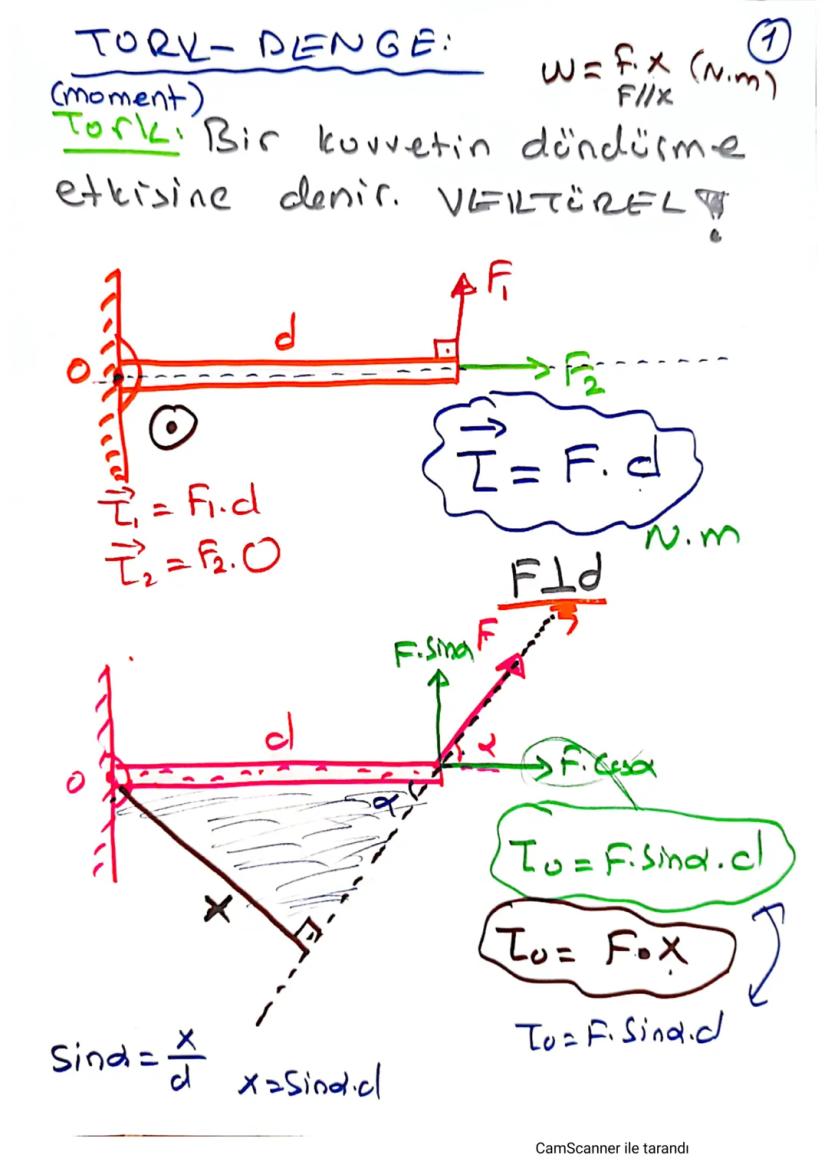 TORK - DENGE:
1
(moment)
W = F.x (N.m)
F//x
Tork: Bir kuvvetin döndürme
etkisine denir. VEKTÖREL !
F₁
d
O
F₂
τ⃗ = F.d
N.m
τ⃗₁ = F₁.d
τ⃗₂ = F₂.0
F⊥d
F.Sinα
F
d
α
F.Cosα
O
α
τ₀ = F.Sinα.d
x
τ₀ = F.x
τ₀ = F.Sinα.d
Sinα = x/d
x = Sinα.d
CamScanner ile tarandı